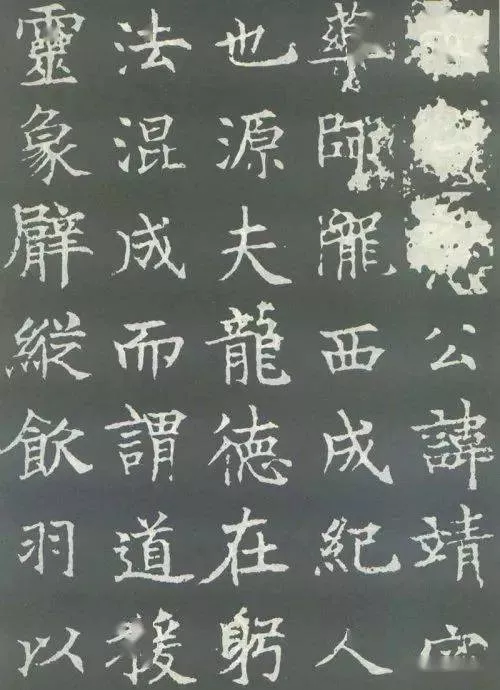 公諱靖字
藥師隴西成紀人
也源夫龍德在躬
法混成而謂道援
靈象縱飲羽以